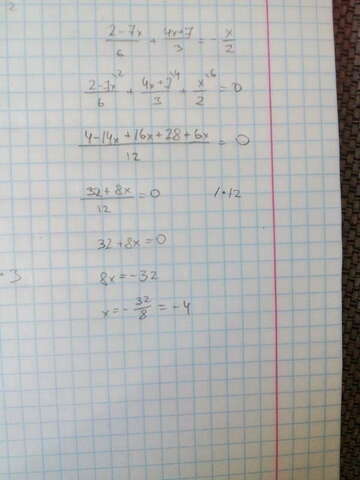 2
(2-7x)/6 + (4x+7)/3 = -x/2
(2-7x)/6 \2 + (4x+7)/3 \4 + x/2 \6 = 0
(4-14x+16x+28+6x)/12 = 0
(32+8x)/12 = 0 /•12
32+8x=0
•3 8x=-32
x=-32/8=-4